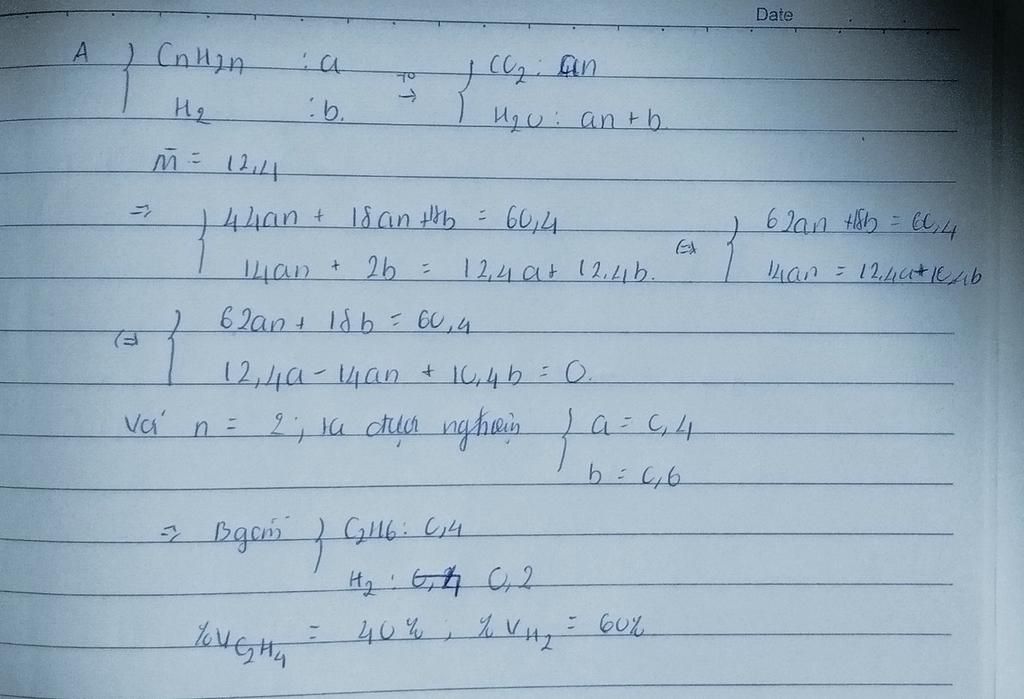 Date
A { CnH2n : a →(t°) { CO2 : an
H2 : b. H2O : an + b
m̄ = 12,4
=> { 44an + 18an + 18b = 60,4 (=) { 62an + 18b = 60,4
14an + 2b = 12,4a + 12,4b. 14an = 12,4a + 10,4b
(=) { 62an + 18b = 60,4
12,4a - 14an + 10,4b = 0.
Với n = 2; ta được nghiệm { a = 0,4
b = 0,6
=> B gồm { C2H6 : 0,4
H2 : 0,2
%VC2H4 = 40%, %VH2 = 60%